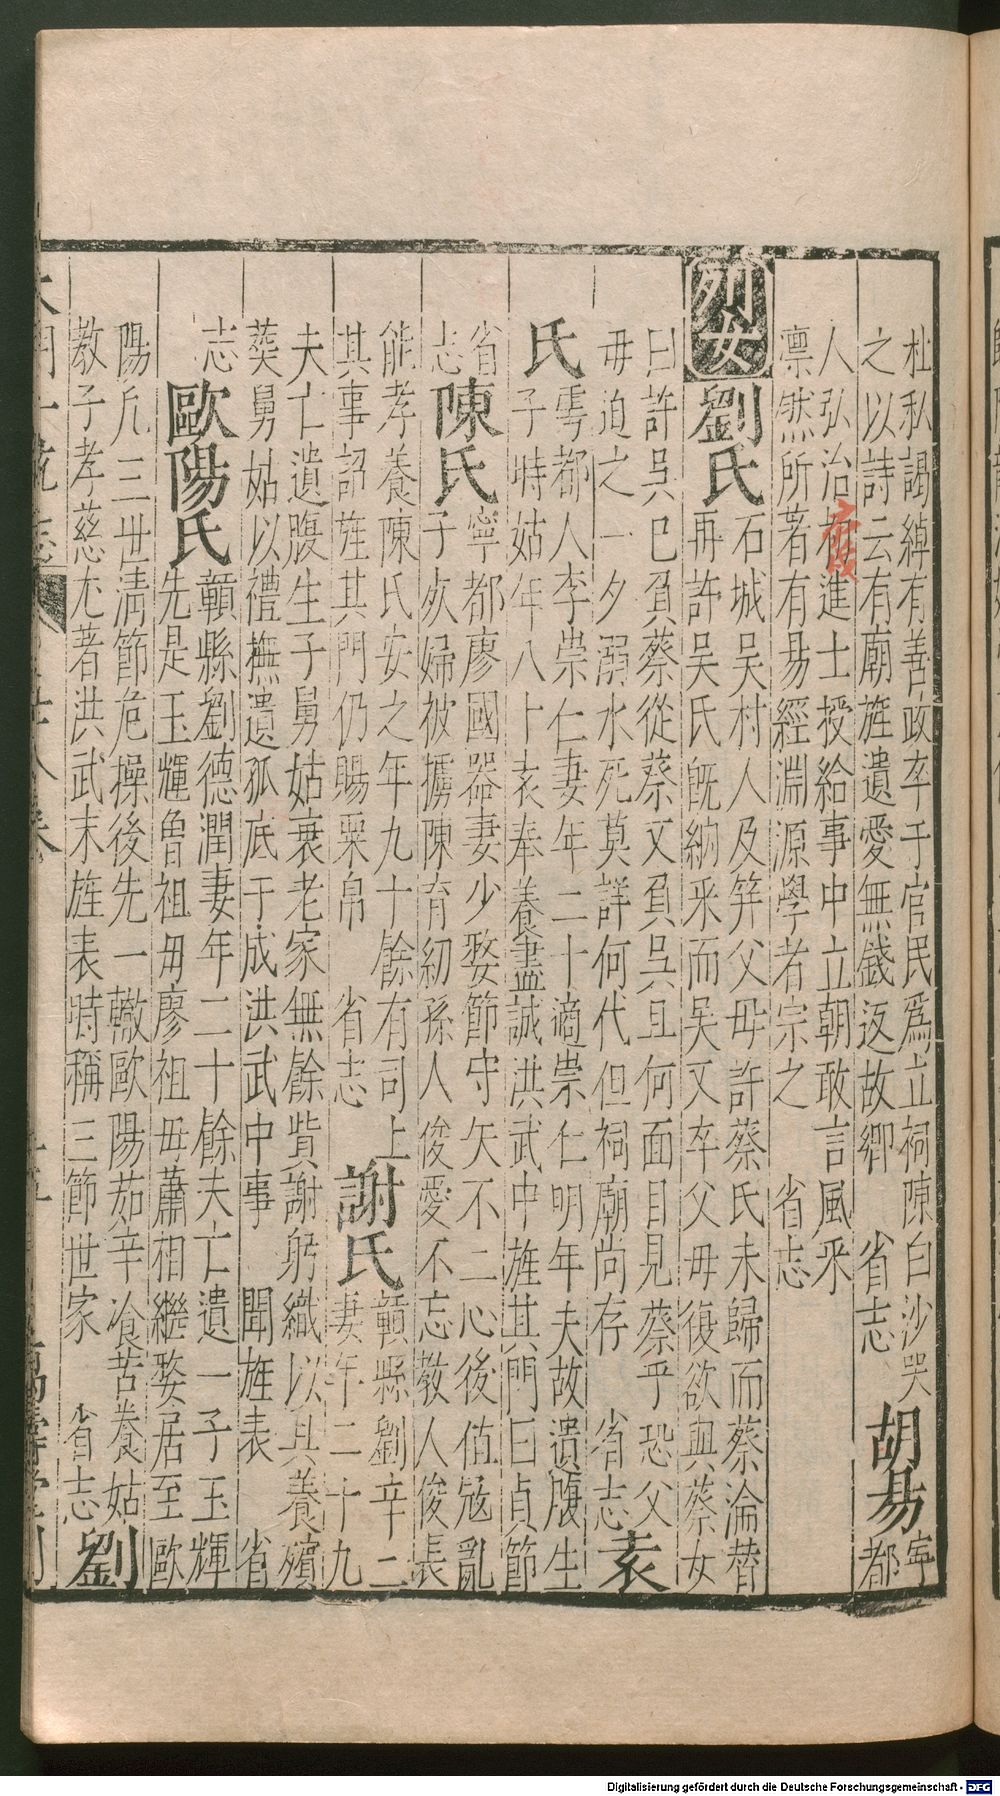 杜私謁綽有善政卒于官民爲立祠陳白沙哭
之以詩云有廟旌遺愛無錢返故鄉 省志
胡易
寧
都
人弘治 進士授給事中立朝敢言風采
凛然所著有易經淵源學者宗之 省志
列女
劉氏
石城吴村人及筓父毋許蔡氏未歸而蔡淪替
再許吴氏旣納采而吴又卒父毋復欲與蔡女
曰許吴已負蔡從蔡又負吴且何面目見蔡乎恐父
毋迫之一夕溺水死莫詳何代但祠廟尚存 省志
袁
氏
雩都人李崇仁妻年二十適崇仁明年夫故遺腹生
子時姑年八十袁奉養盡誠洪武中旌其門曰貞節
省
志
陳氏
寧都廖國器妻少娶節守矢不二心後值寇亂
子夾婦被擄陳育紉孫人俊愛不忘教人俊長
能孝養陳氏安之年九十餘有司上
其事詔旌其門仍賜粟帛 省志
謝氏
贛縣劉辛二
妻年二十九
夫亡遺腹生子舅姑衰老家無餘貲謝躬織以具養殯
葬舅姑以禮撫遺孤底于成洪武中事 聞旌表 省
志
歐陽氏
贛縣劉德潤妻年二十餘夫亡遺一子玉輝
先是玉輝曾祖毋廖祖毋蕭相繼娶居至歐
陽凡三世清節危操後先一轍歐陽茹辛飡苦養姑
教子孝慈尤著洪武末旌表時稱三節世家 省志
劉
萬壽堂刊
Digitalisierung gefördert durch die Deutsche Forschungsgemeinschaft - DFG